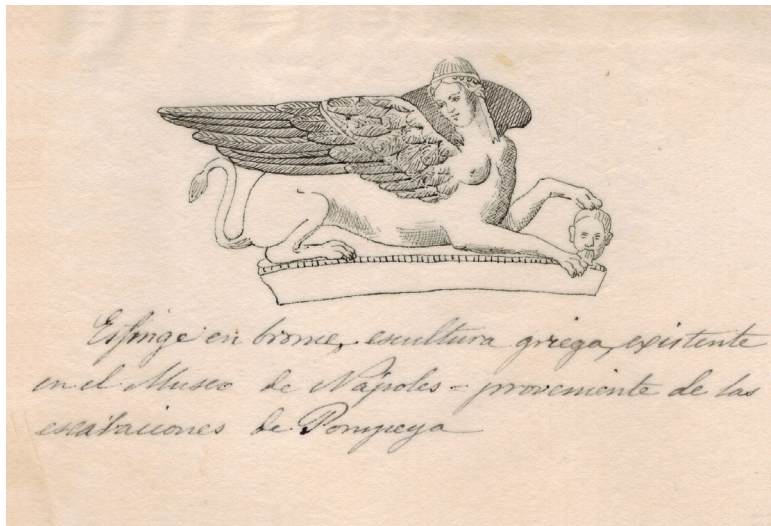 Esfinge en bronce, escultura griega, existente
en el Museo de Nápoles - proveniente de las
escabaciones de Pompeya